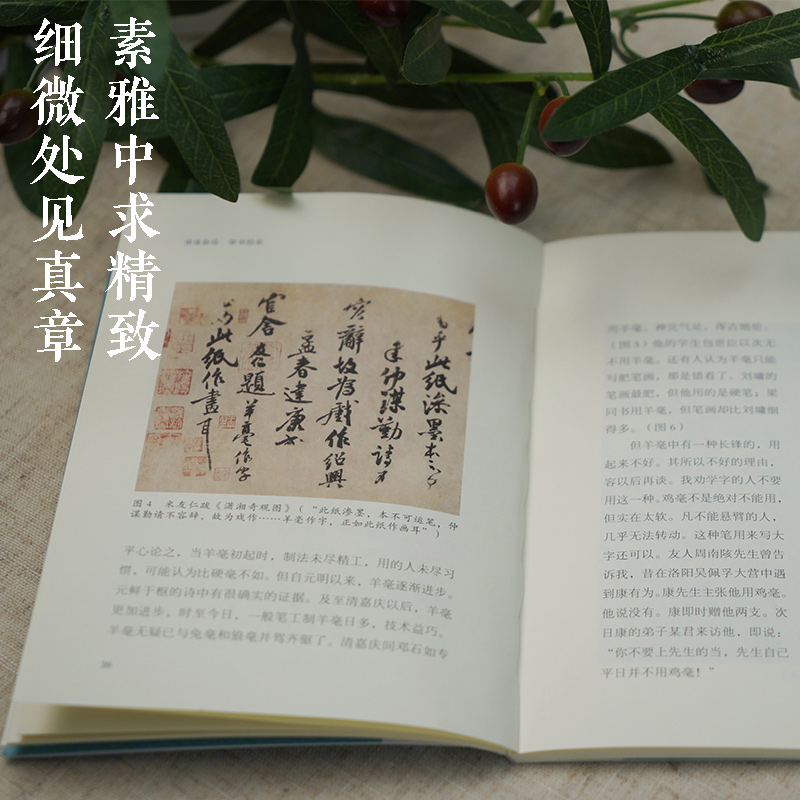 素雅中求精致
细微处见真章
书法杂论 学书经求
宦舍 友仁題 羊毫作字
正如此紙作畫耳
容辭故為戲作紹興
孟春建康書
此紙滲墨本不可
運筆仲謀勤請不
图4 米友仁跋《潇湘奇观图》（“此纸渗墨，本不可运笔，仲
谋勤请不容辞，故为戏作……羊毫作字，正如此纸作画耳”）
平心论之，当羊毫初起时，制法未尽精工，用的人未尽习
惯，可能认为比硬毫不如。但自元明以来，羊毫逐渐进步。
元鲜于枢的诗中有很确实的证据。及至清嘉庆以后，羊毫
更加进步。时至今日，一般笔工制羊毫日多，技术益巧。
羊毫无疑已与兔毫和狼毫并驾齐驱了。清嘉庆间邓石如专
用羊毫，神完气足，浑古绝伦。
（图5）他的学生包世臣以次无
不用羊毫。还有人认为羊毫只能
写肥笔画，那是错看了。刘墉的
笔画最肥，但他用的是硬笔；梁
同书用羊毫，但笔画却比刘墉细
得多。（图6）
但羊毫中有一种长锋的，用
起来不好。其所以不好的理由，
容以后再谈。我劝学字的人不要
用这一种。鸡毫不是绝对不能用，
但实在太软。凡不能悬臂的人，
几乎无法转动。这种笔用来写大
字还可以。友人周南陔先生曾告
诉我，昔在洛阳吴佩孚大营中遇
到康有为。康先生主张他用鸡毫。
他说没有。康即时赠他两支。次
日康的弟子某君来访他，即说：
“你不要上先生的当，先生自己
平日并不用鸡毫！”